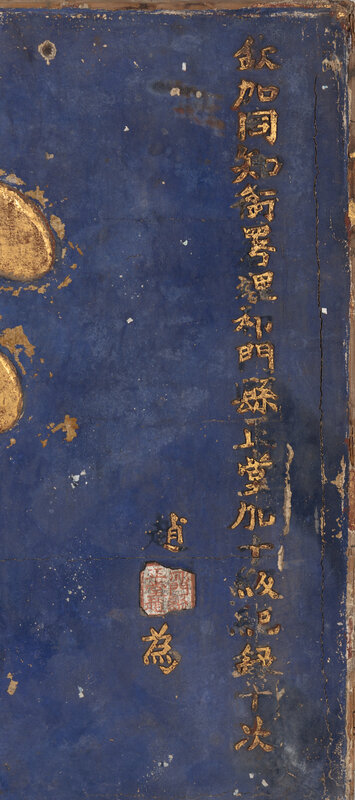 欽加同知銜署理祁門縣正堂加十級紀錄十次
趙
為